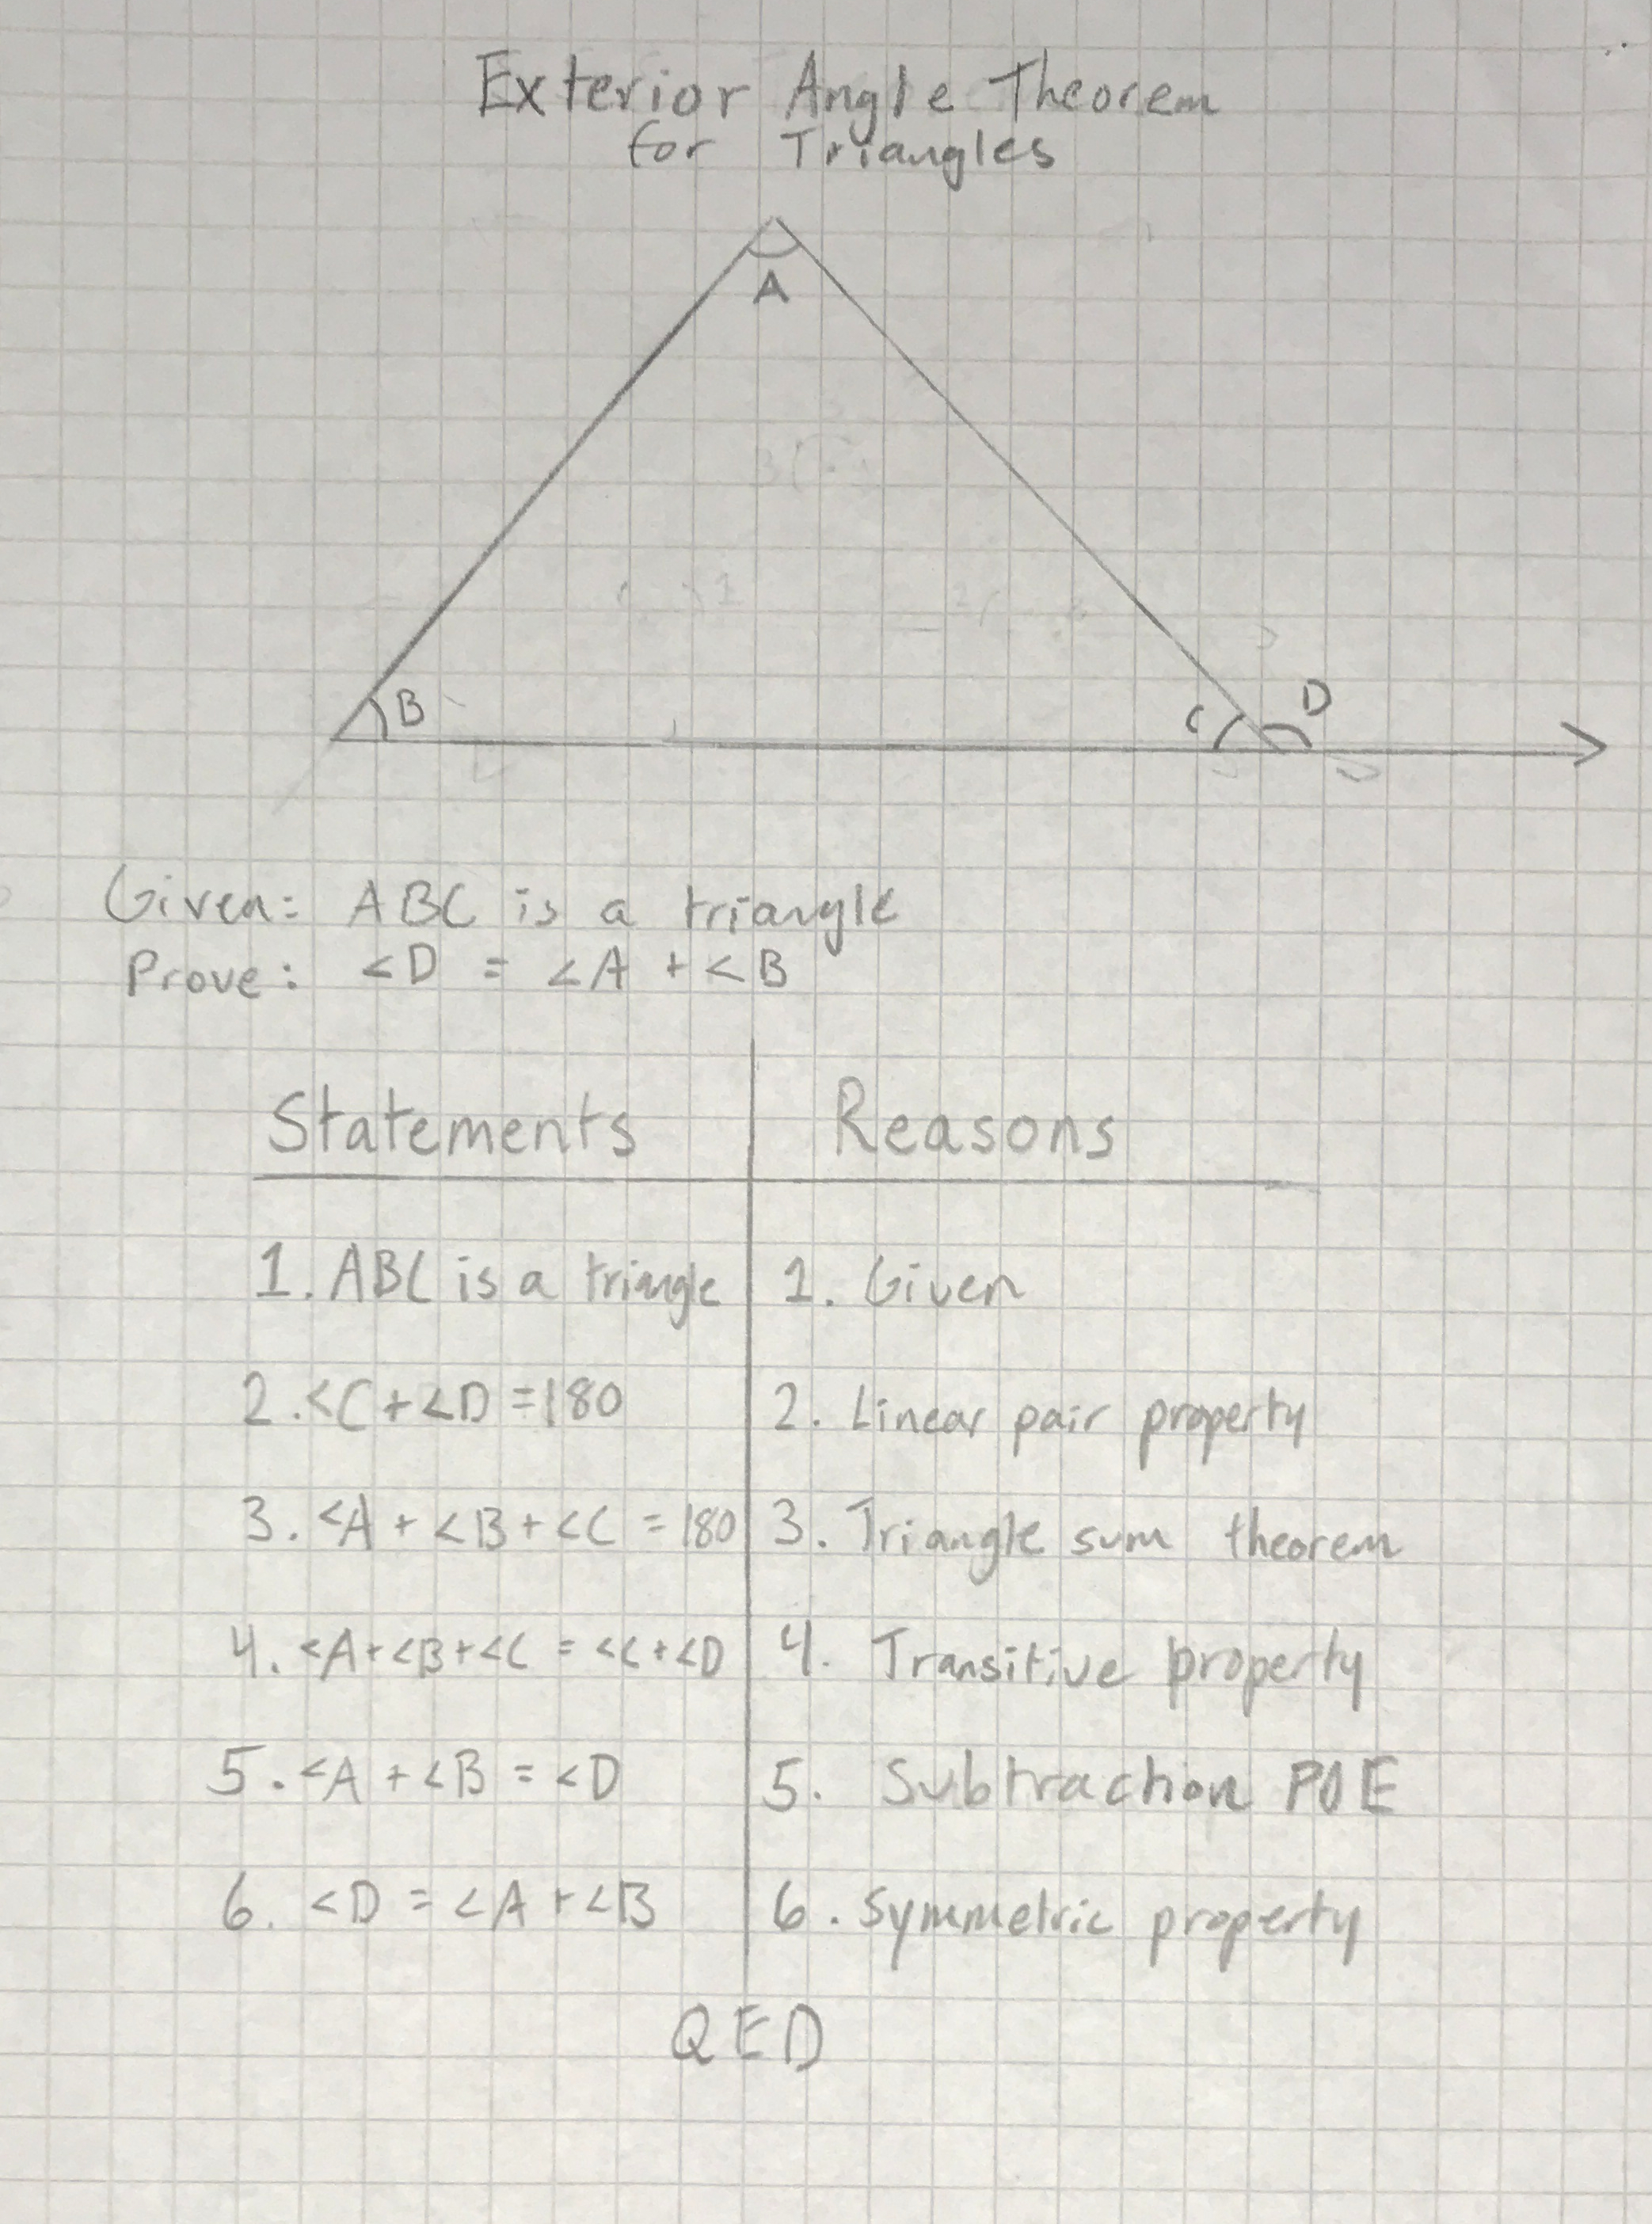 Exterior Angle Theorem
for Triangles
A
B
C
D
Given: ABC is a triangle
Prove: <D = <A + <B
Statements Reasons
1. ABC is a triangle 1. Given
2. <C + <D = 180 2. Linear pair property
3. <A + <B + <C = 180 3. Triangle sum theorem
4. <A + <B + <C = <C + <D 4. Transitive property
5. <A + <B = <D 5. Subtraction POE
6. <D = <A + <B 6. Symmetric property
QED